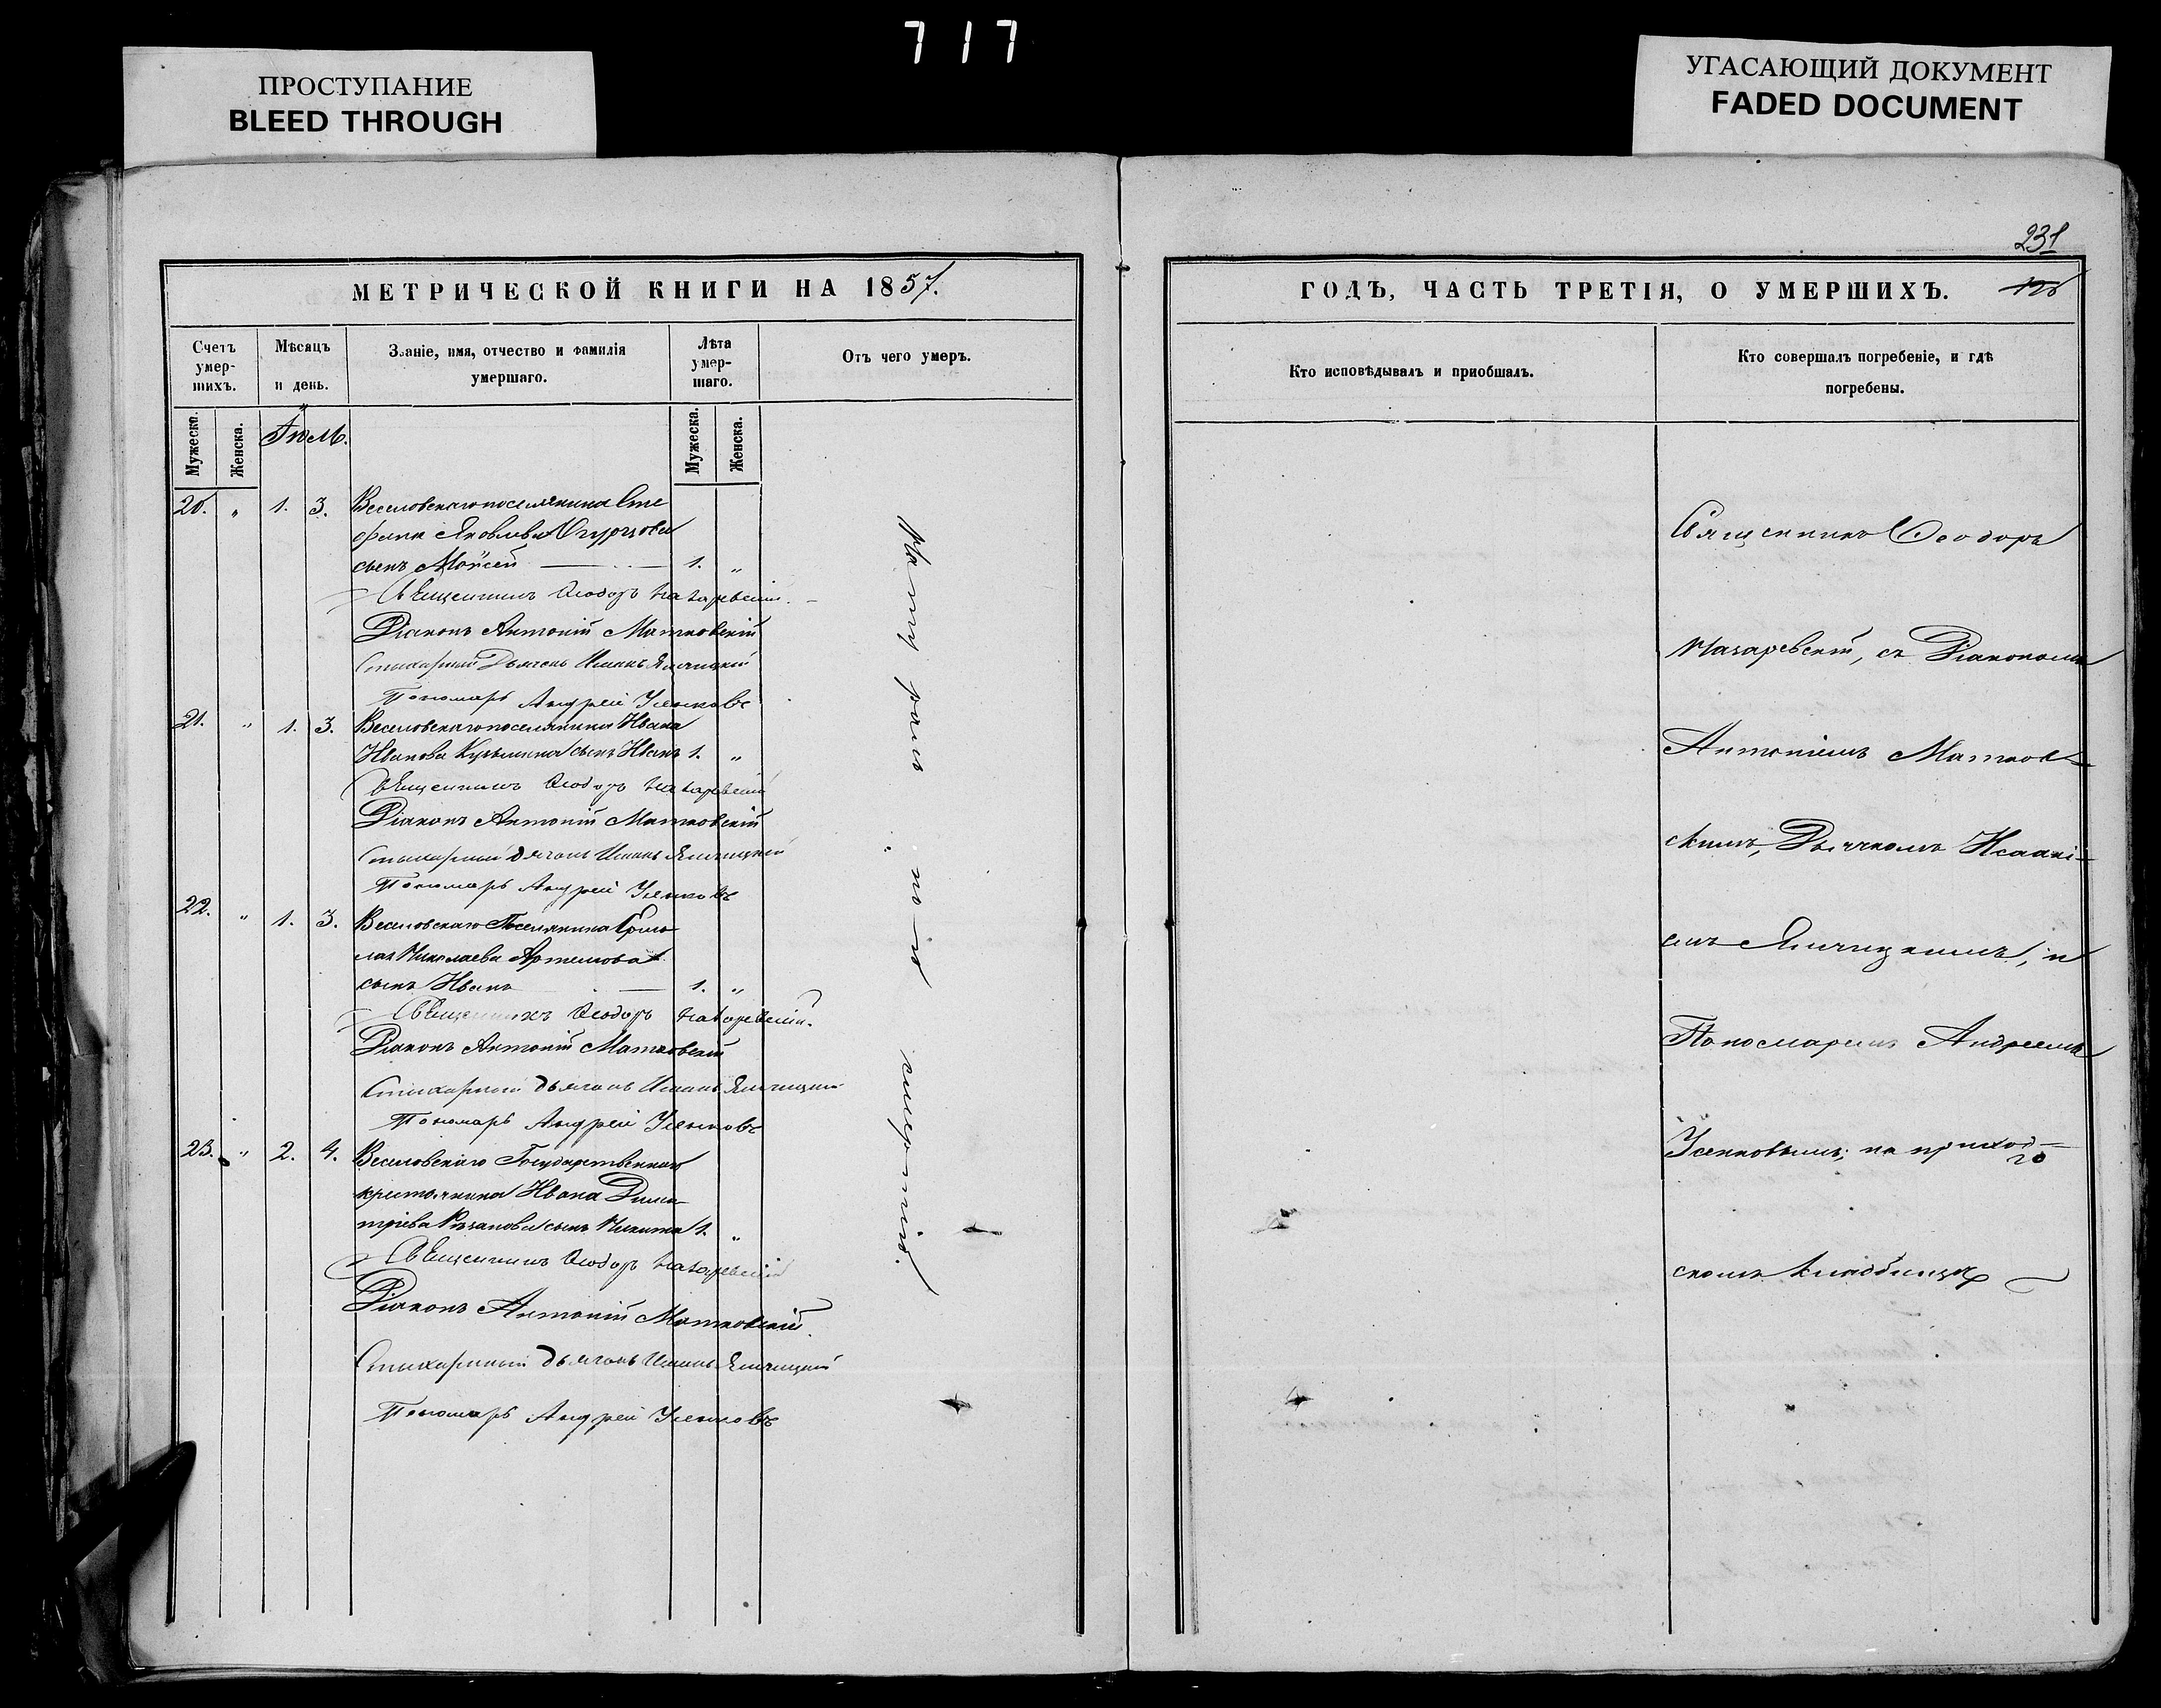 717
ПРОСТУПАНИЕ
BLEED THROUGH
УГАСАЮЩИЙ ДОКУМЕНТ
FADED DOCUMENT
МЕТРИЧЕСКОЙ КНИГИ НА 1857.
Счетъ умер-шихъ.
Мѣсяцъ и день.
Званіе, имя, отчество и фамилія умершаго.
Лѣта умер-шаго.
Отъ чего умеръ.
Мужеска.
Женска.
Іюль.
Мужеска.
Женска.
20. " 1. 3. Веселовскаго поселянина Сте
фана Яковлева Огурцова
сынъ Моѵсей 1. "
Священникъ Ѳеодоръ Назаревскій.
Діаконъ Антоній Матковскій
Стихарный Дьячокъ Исаакъ
Пономарь Андрей Усенковъ
21. " 1. 3. Веселовскаго поселянина Ивана
Иванова Кузьмина сынъ Иванъ 1. "
Священникъ Ѳеодоръ Назаревскій
Діаконъ Антоній Матковскій
Стихарный дьячокъ Исаакъ
Пономарь Андрей Усенковъ
22. " 1. 3. Веселовскаго Поселянина Ермо
лая Николаева Артемова
сынъ Иванъ 1. "
Священникъ Ѳеодоръ Назаревскій.
Діаконъ Антоній Матковскій
Стихарный дьячокъ Исаакъ
Пономарь Андрей Усенковъ
23. " 2. 4. Веселовскаго Государственнаго
крестьянина Ивана Дими
тріева сынъ Никита 1. "
Священникъ Ѳеодоръ Назаревскій
Діаконъ Антоній Матковскій.
Стихарный дьячокъ Исаакъ
Пономарь Андрей Усенковъ
231
ГОДЪ, ЧАСТЬ ТРЕТІЯ, О УМЕРШИХЪ.
Кто исповѣдывалъ и приобщалъ.
Кто совершалъ погребеніе, и гдѣ погребены.
Священникъ Ѳеодоръ
Назаревскій, съ Діакономъ
Антоніемъ Матков-
скимъ, Дьячкомъ Исаакі-
емъ и
Пономаремъ Андреемъ
Усенковымъ; на приход-
скомъ кладбищѣ